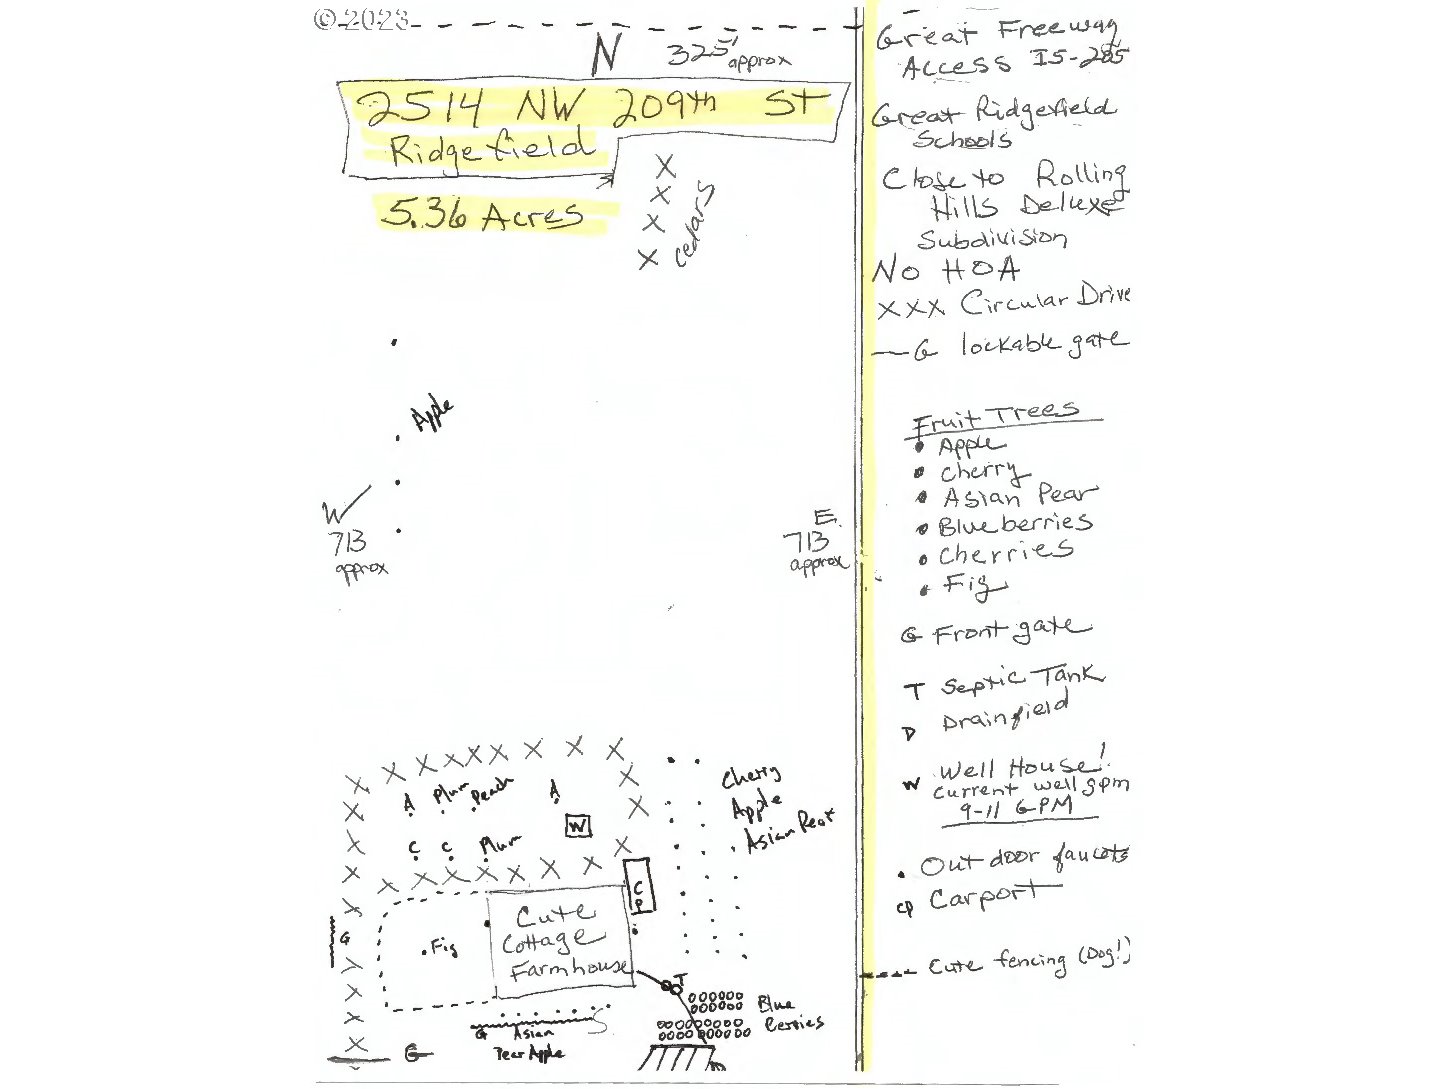 © 2023
N 325' approx
2514 NW 209th ST
Ridgefield
5.36 Acres
cedars
Apple
W
713
approx
E.
713
approx
A Plum Peach A
W
C C Plum
Cherry
Apple
Asian Pear
CP
G
Fig
Cute
Cottage
Farmhouse
T
Blue
Berries
G Asian
Pear Apple
S
G
D
Great Freeway
Access I5-205
Great Ridgefield
Schools
Close to Rolling
Hills Deluxe
Subdivision
No HOA
XXX Circular Drive
—G lockable gate
Fruit Trees
• Apple
• Cherry
• Asian Pear
• Blueberries
• Cherries
• Fig
G Front gate
T Septic Tank
D Drainfield
W Well House!
current well gpm
9-11 GPM
. Outdoor faucets
CP Carport
---- Cute fencing (Dog!)